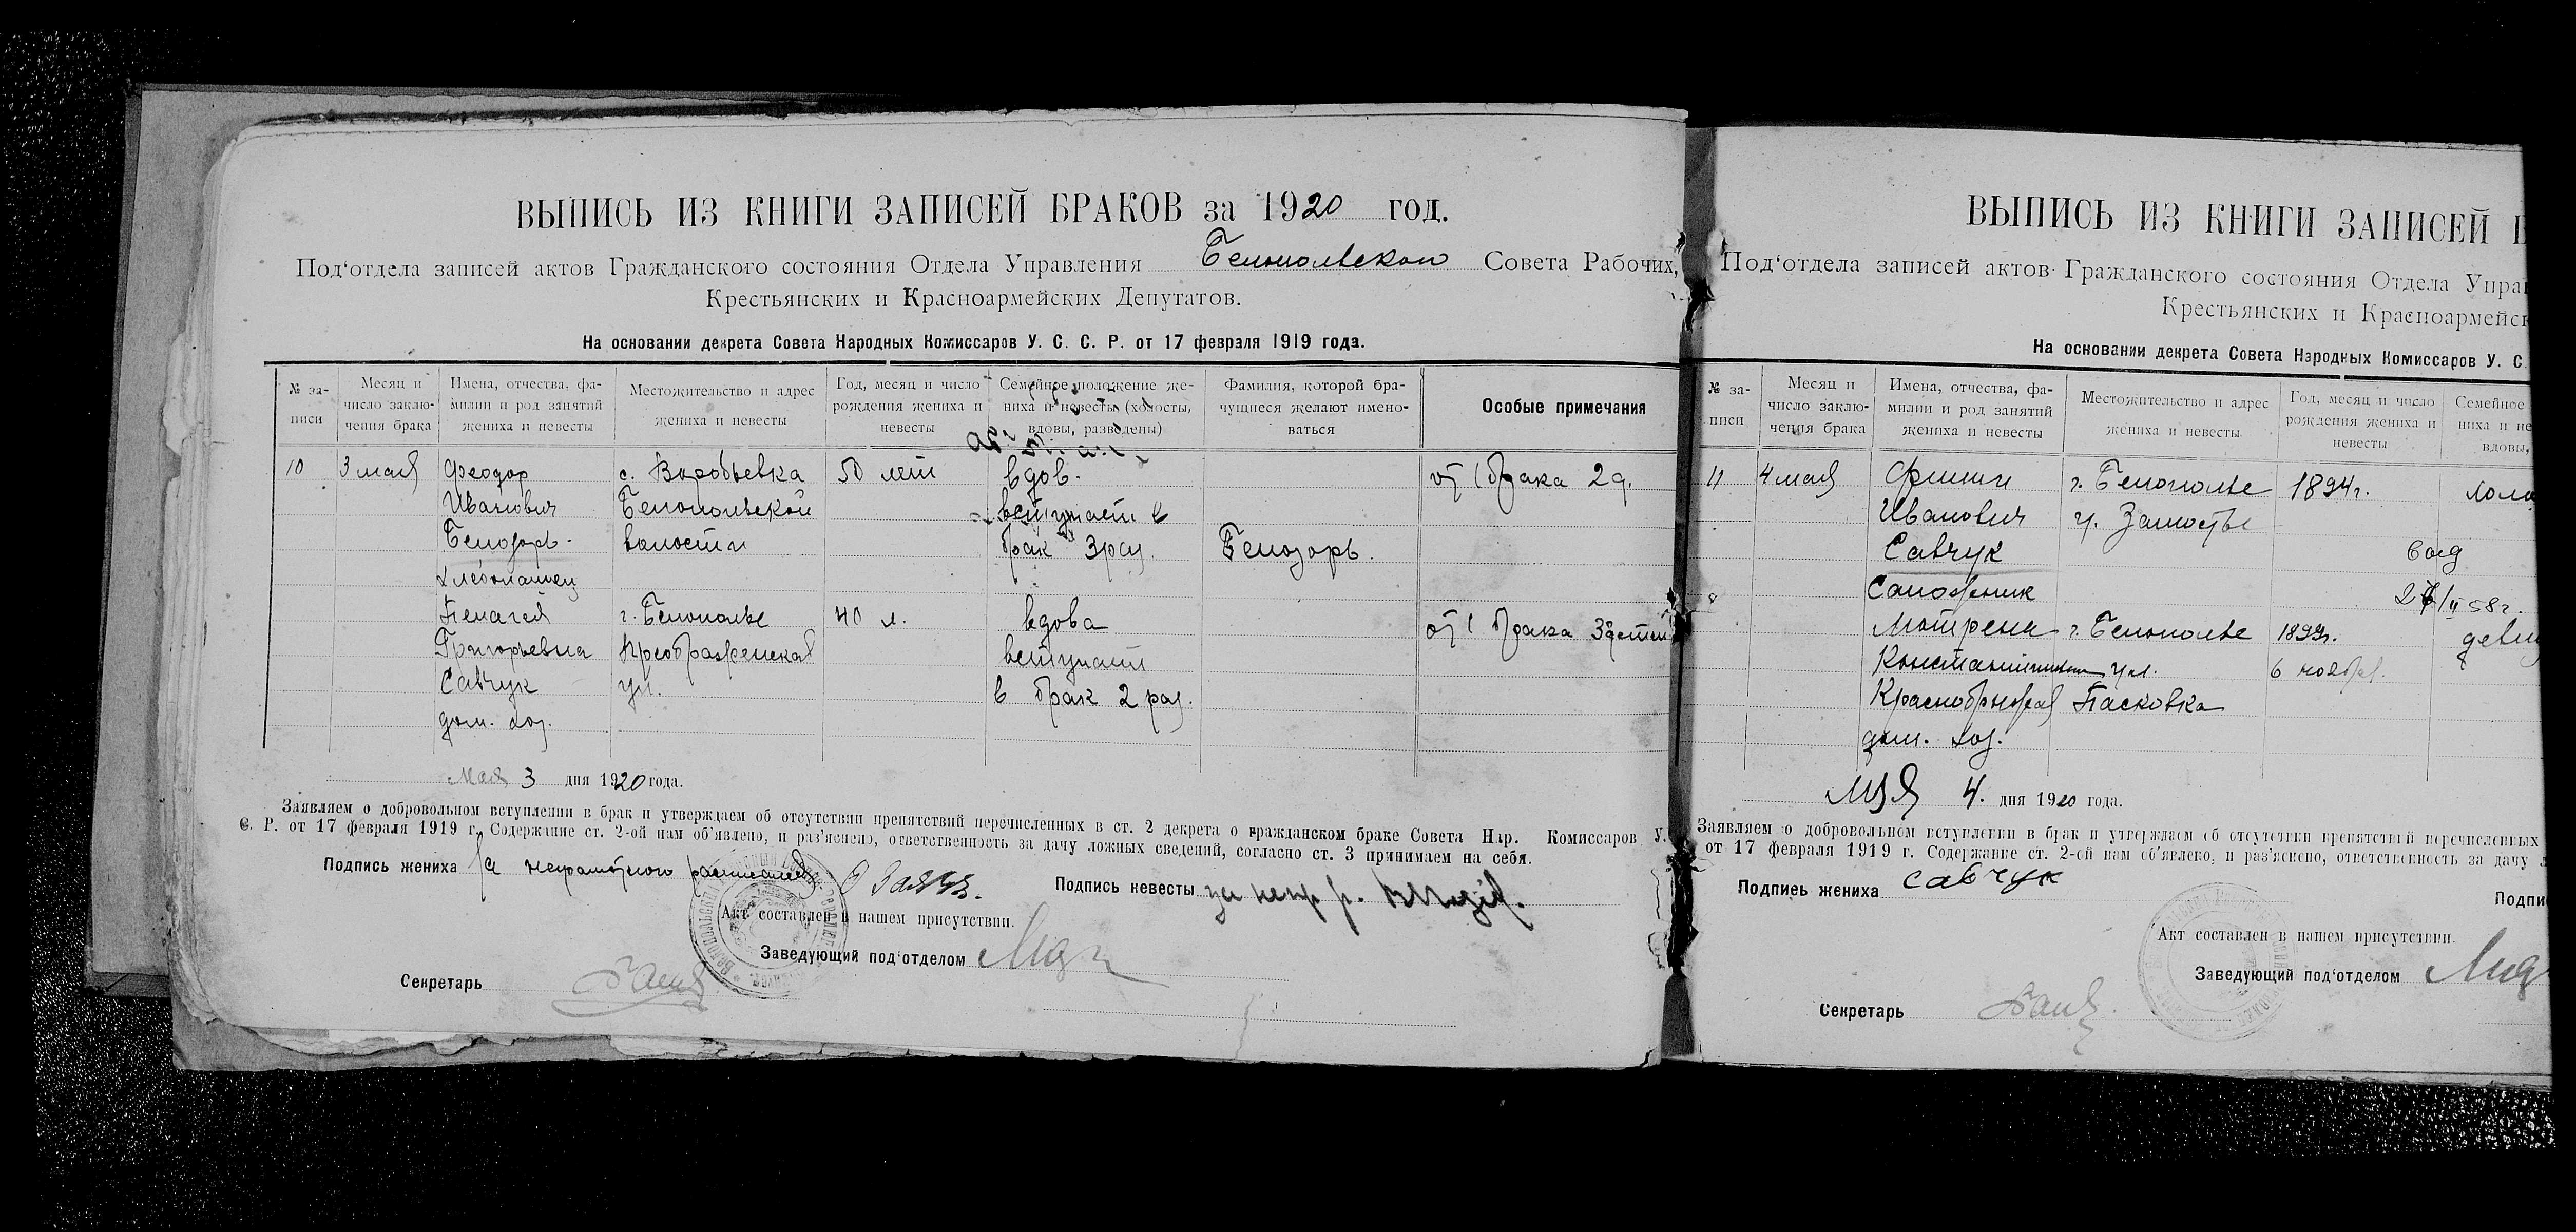 ВЫПИСЬ ИЗ КНИГИ ЗАПИСЕЙ БРАКОВ за 1920 год.
Под‘отдела записей актов Гражданского состояния Отдела Управления Белопольском Совета Рабочих,
Крестьянских и Красноармейских Депутатов.
На основании декрета Совета Народных Комиссаров У. С. С. Р. от 17 февраля 1919 года.
№ за-
писи
Месяц и
число заклю-
чения брака
Имена, отчества, фа-
милии и род занятий
жениха и невесты
Местожительство и адрес
жениха и невесты
Год, месяц и число
рождения жениха и
невесты
Семейное положение же-
ниха и невесты (холосты,
вдовы, разведены)
Фамилия, которой бра-
чущиеся желают имено-
ваться
Особые примечания
10 3 мая Феодор с. Воробьевка 50 лет вдов. от 1 брака 2 д.
Иванович Белопольской вступает в
Белозорь волости брак 3 раз. Белозорь.
хлебопашец
Пелагея г. Белополье 40 л. вдова от 1 брака 3 детей
Григорьевна Преображенская вступает
Савчук ул. в брак 2 раз.
дом. хоз.
Мая 3 дня 1920 года.
Заявляем о добровольном вступлении в брак и утверждаем об отсутствии препятствий перечисленных в ст. 2 декрета о гражданском браке Совета Нар. Комиссаров У.
С. Р. от 17 февраля 1919 г. Содержание ст. 2-ой нам об‘явлено, и раз‘яснено, ответственность за дачу ложных сведений, согласно ст. 3 принимаем на себя.
Подпись жениха за неграмотного расписался
Подпись невесты за негр. р.
Акт составлен в нашем присутствии.
Заведующий под‘отделом
Секретарь
ВЫПИСЬ ИЗ КНИГИ ЗАПИСЕЙ Б
Под‘отдела записей актов Гражданского состояния Отдела Управ
Крестьянских и Красноармейск
На основании декрета Совета Народных Комиссаров У. С.
№ за-
писи
Месяц и
число заклю-
чения брака
Имена, отчества, фа-
милии и род занятий
жениха и невесты
Местожительство и адрес
жениха и невесты
Год, месяц и число
рождения жениха и
невесты
Семейное
ниха и не
вдовы,
11 4 мая Филип г. Белополье 1894 г. холо
Иванович у. Замостье
Савчук
Сапожник
Мотрена г. Белополье девиц
Константиновна ул. 6 ноябр.
Краснобрыжая Пасковка
дом. хоз.
Мая 4. дня 1920 года.
Заявляем о добровольном вступлении в брак и утверждаем об отсутствии препятствий перечисленных
от 17 февраля 1919 г. Содержание ст. 2-ой нам об‘явлено, и раз‘яснено, ответственность за дачу л
Подпись жениха Савчук
Подпи
Акт составлен в нашем присутствии.
Заведующий под‘отделом
Секретарь